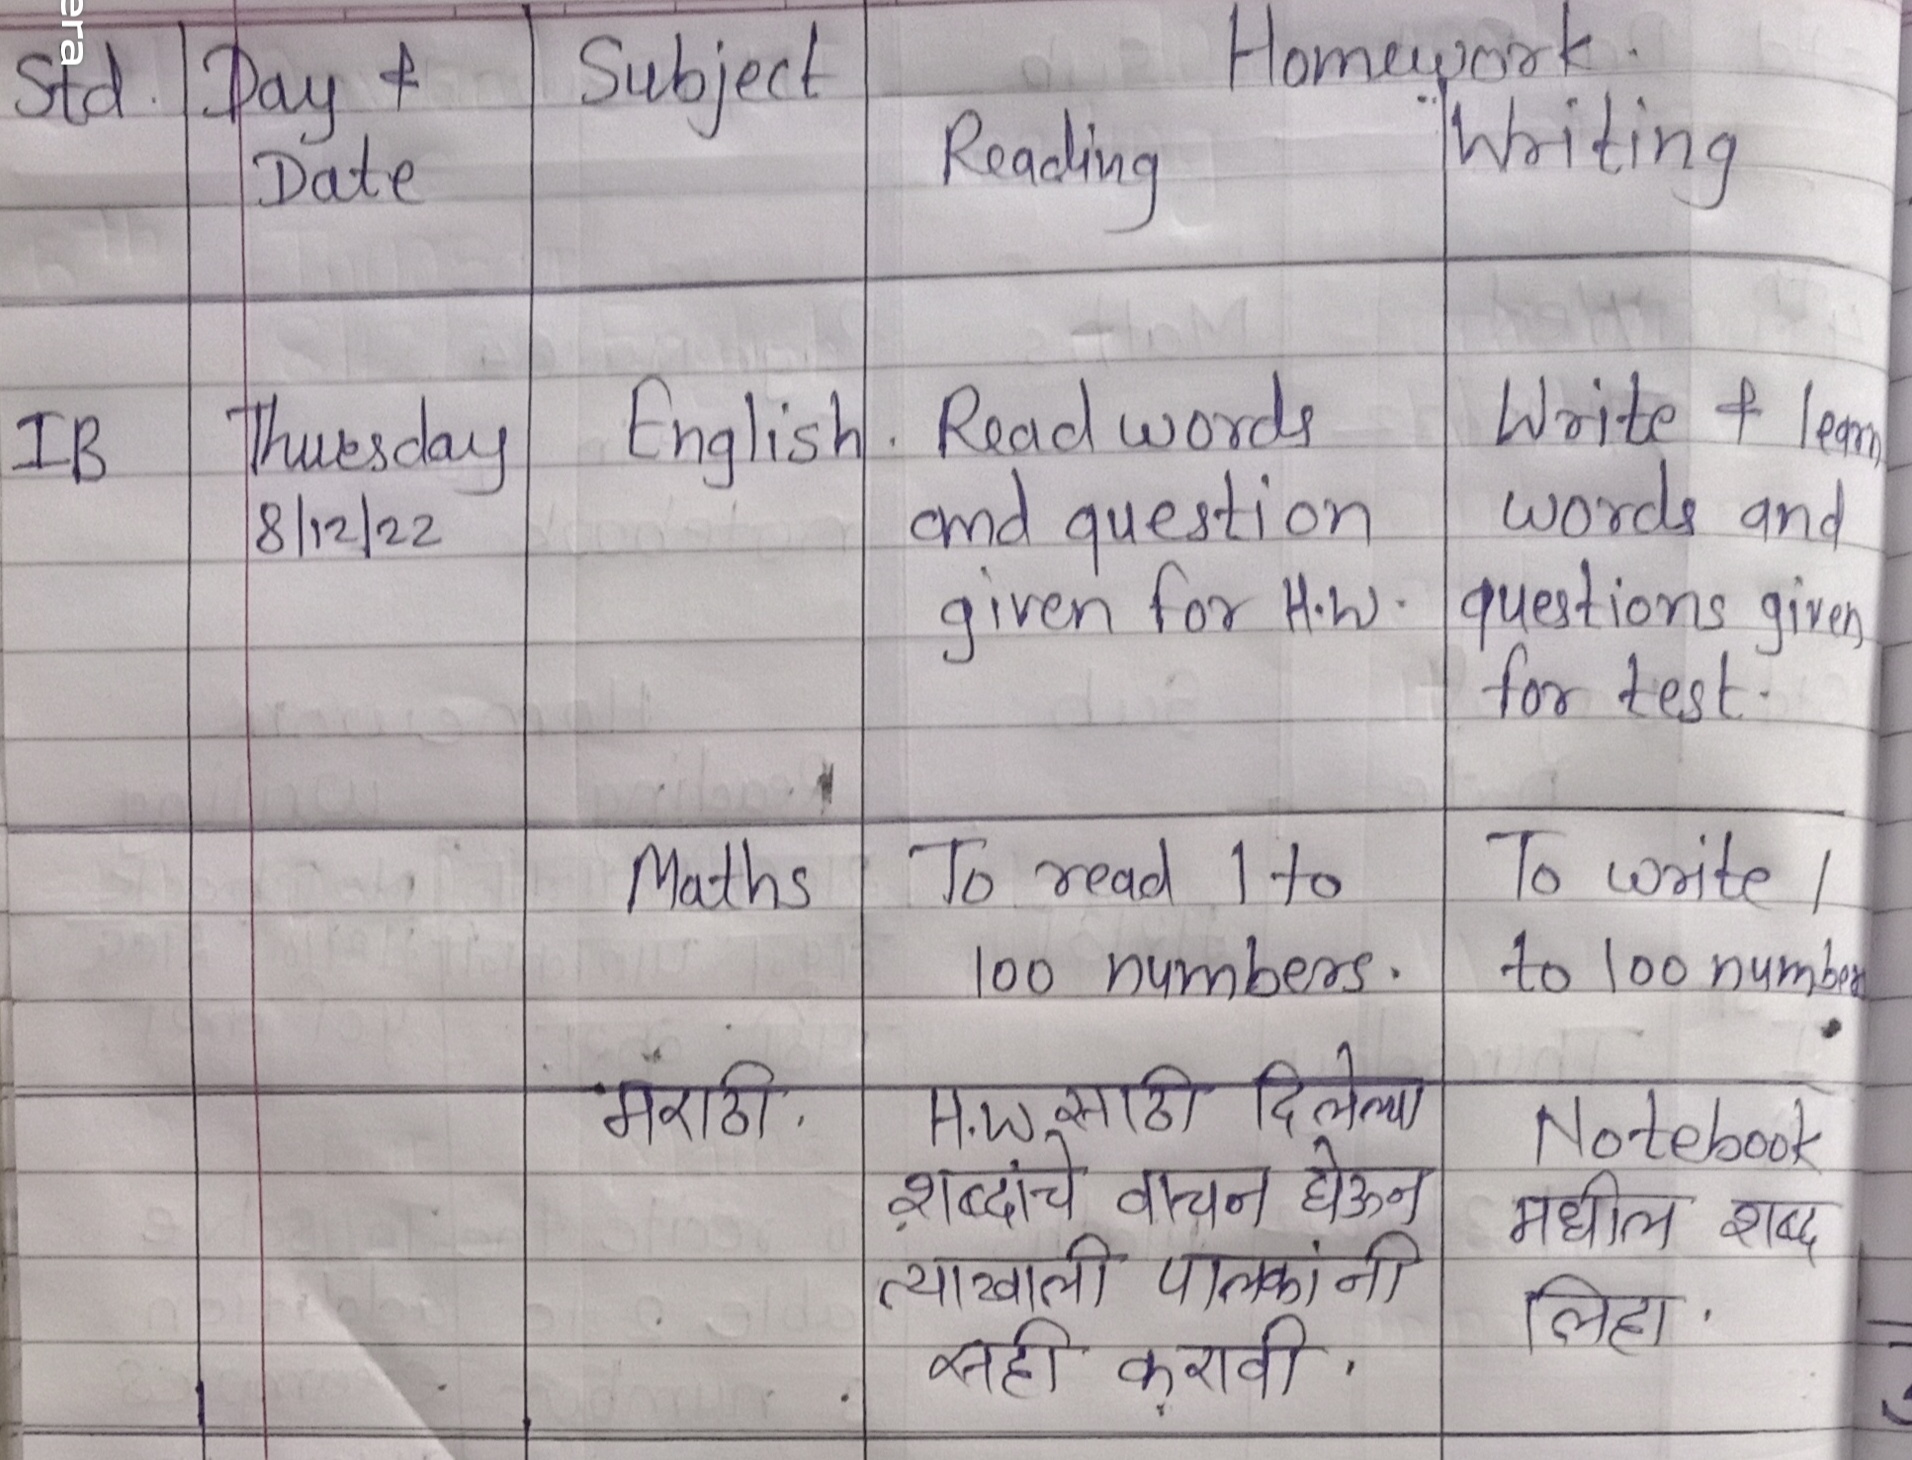 era
Std. Day & Subject Homework.
Date Reading Writing
IB Thuesday English. Read words Write & learn
8/12/22 and question words and
given for H.W. questions given
for test.
Maths To read 1 to To write 1
100 numbers. to 100 numbers
मराठी. H.W. साठी दिलेल्या Notebook
शब्दांचे वाचन घेऊन मधील शब्द
त्याखाली पालकांनी लिहा.
सही करावी.